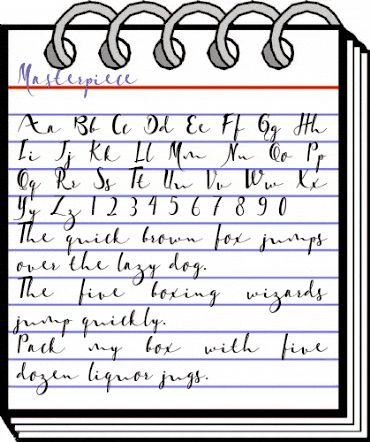 Masterpiece
Aa Bb Cc Dd Ee Ff Gg Hh
Ii Jj Kk Ll Mm Nn Oo Pp
Qq Rr Ss Tt Uu Vv Ww Xx
Yy Zz 1 2 3 4 5 6 7 8 9 0
The quick brown fox jumps
over the lazy dog.
The five boxing wizards
jump quickly.
Pack my box with five
dozen liquor jugs.